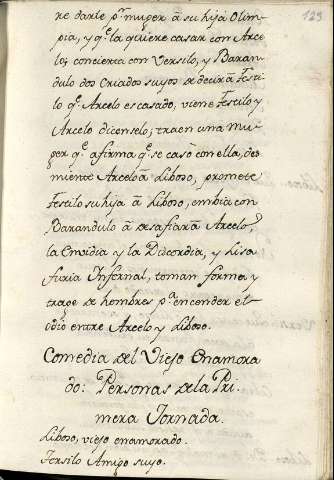 123
re darle p.ª muger à su hija Olim-
pia, y q.e la quiere casar con Arce
lo; concierta con Versilo, y Baran-
dulo dos Criados suyos de decir à Festi-
lo q.e Arcelo es casado, viene Festilo y
Arcelo diconselo, traen una mu-
ger q.e afirma q.e se casò con ella, des
miente Arcelo à Liboso, promete
Festilo su hija à Liboso, embia con
Barandulo à desafiar à Arcelo,
la Envidia y la Discordia, y
furia Infernal, toman forma y
trage de hombres p.ª encender el
odio entre Arcelo y Liboso.
Comedia del Viejo Enamora
do: Personas de la Pri
mera Jornada.
Liboso, viejo enamorado.
Festilo Amigo suyo.